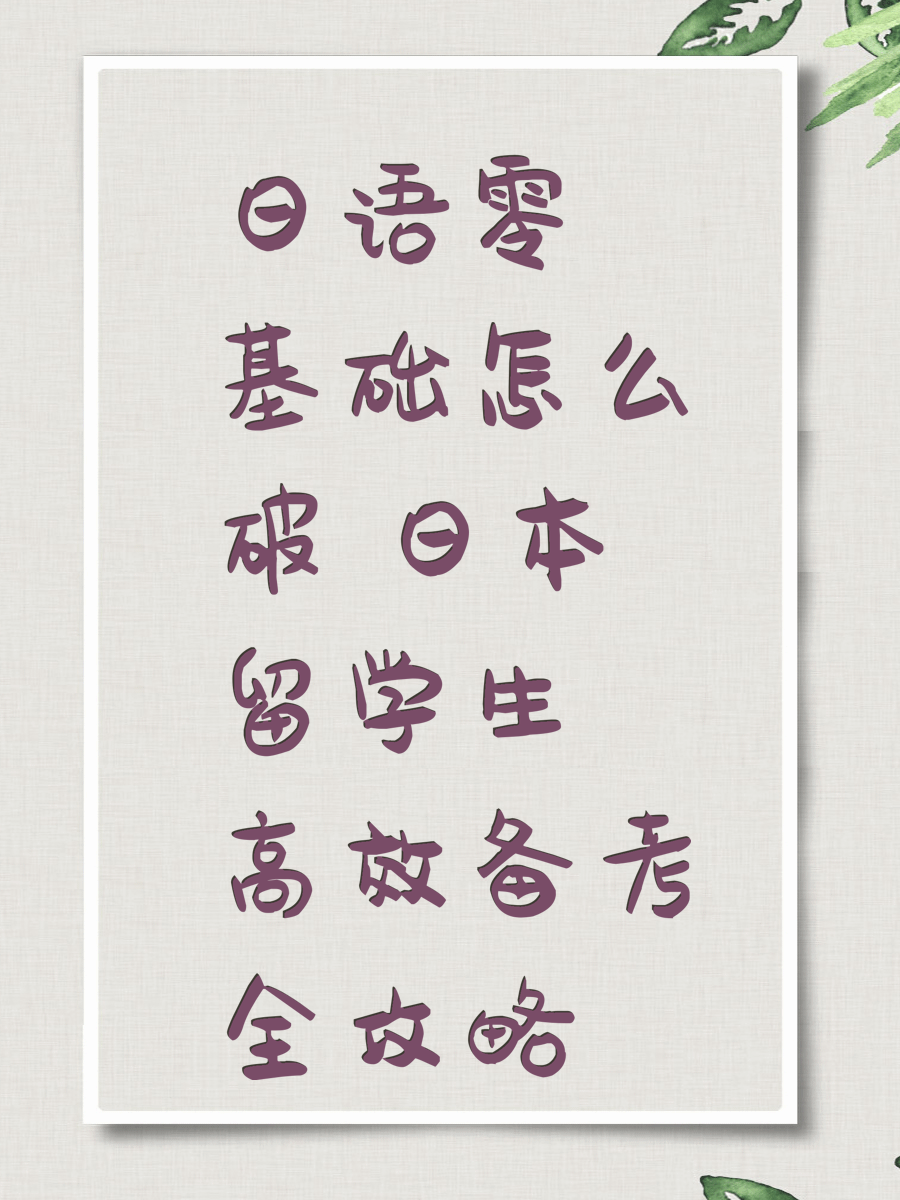 日语零
基础怎么
破 日本
留学生
高效备考
全攻略